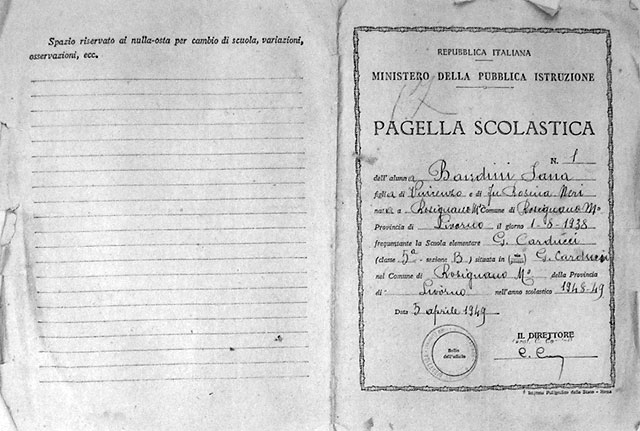 Spazio riservato ai nulla-osta per cambio di scuola, variazioni,
osservazioni, ecc.
REPUBBLICA ITALIANA
MINISTERO DELLA PUBBLICA ISTRUZIONE
PAGELLA SCOLASTICA
N. 1
dell'alunna Bandini Lana
figlia di Vincenzo e di fu Rosina Neri
nata a Rosignano Mº Comune di Rosignano Mº
Provincia di Livorno il giorno 1-8-1938
frequentante la Scuola elementare G. Carducci
(classe 5ª - sezione B) situata in G. Carducci
nel Comune di Rosignano Mº della Provincia
di Livorno nell'anno scolastico 1948-49
Data 5 aprile 1949
IL DIRETTORE
Bollo
dell'ufficio
Istituto Poligrafico dello Stato - Roma